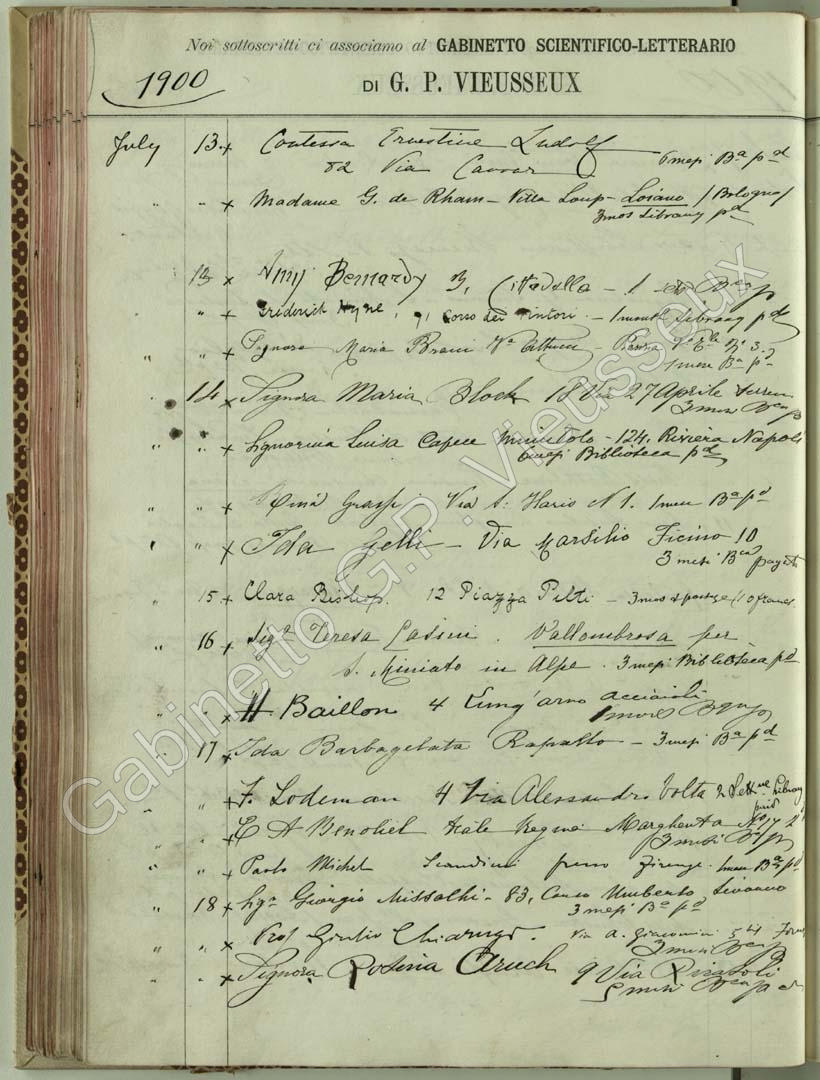 Noi sottoscritti ci associamo al GABINETTO SCIENTIFICO-LETTERARIO
1900
DI G. P. VIEUSSEUX
July 13 x Contessa Ernestine Ludolf
82 Via Cavour 6 mesi Bª pd
" " x Madame G. de Rham - Villa Loup - Loiano / Bologna /
3 mos Library pd
" 13 x Amy Bernardy 3, Cittadella - 1
" " x Frederick Hyne, 91 Corso dei Tintori - 1 month Library pd
" " x Signora Maria
1 mese Bª pd
" 14 x Signora Maria Block 18 Via 27 Aprile terreno
3 mesi
" " x Signorina Luisa Capece Minutolo - 124, Riviera Napoli
6 mesi Biblioteca pd
" " x Grassi Via S. Ilario N 1. 1 mese Bª pd
" " x Ida Gelli - Via Marsilio Ficino 10
3 mesi Bca pagati
" 15 x Clara Bishop. 12 Piazza Pitti - 3 mos & postage (10 francs
" 16 x Sigª Teresa Casini. Vallombrosa per
S. Miniato in Alpe. 3 mesi Biblioteca pd
" x H. Baillon 4 Lung'arno Acciaioli
" 17 x Ida Barbagelata Rapallo - 3 mesi Bª pd
" " x F. Lodeman 4 Via Alessandro Volta 2 Library
paid
" " x E A Benoliel Viale Regina Margherita
3 mesi
" " x Paolo Michel Scandicci presso Firenze. 1 mese Bª pd
" 18 x Sigr Giorgio - 83, Corso Umberto Livorno
3 mesi Bª pd
" " x Prof Giulio Chiarugi. Via A. Giacomini
3 mesi
" " x Signora Rosina Aruch 9 Via Ricasoli
mesi Bca pd
Gabinetto G.P. Vieusseux